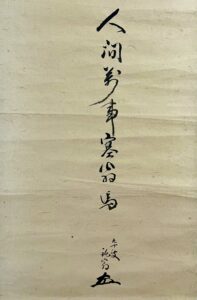 人間萬事塞翁馬